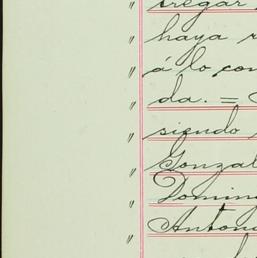 " tregar
haya
" á lo con
" da. =
" siendo
" Gonzal
" Domin
" Antoni